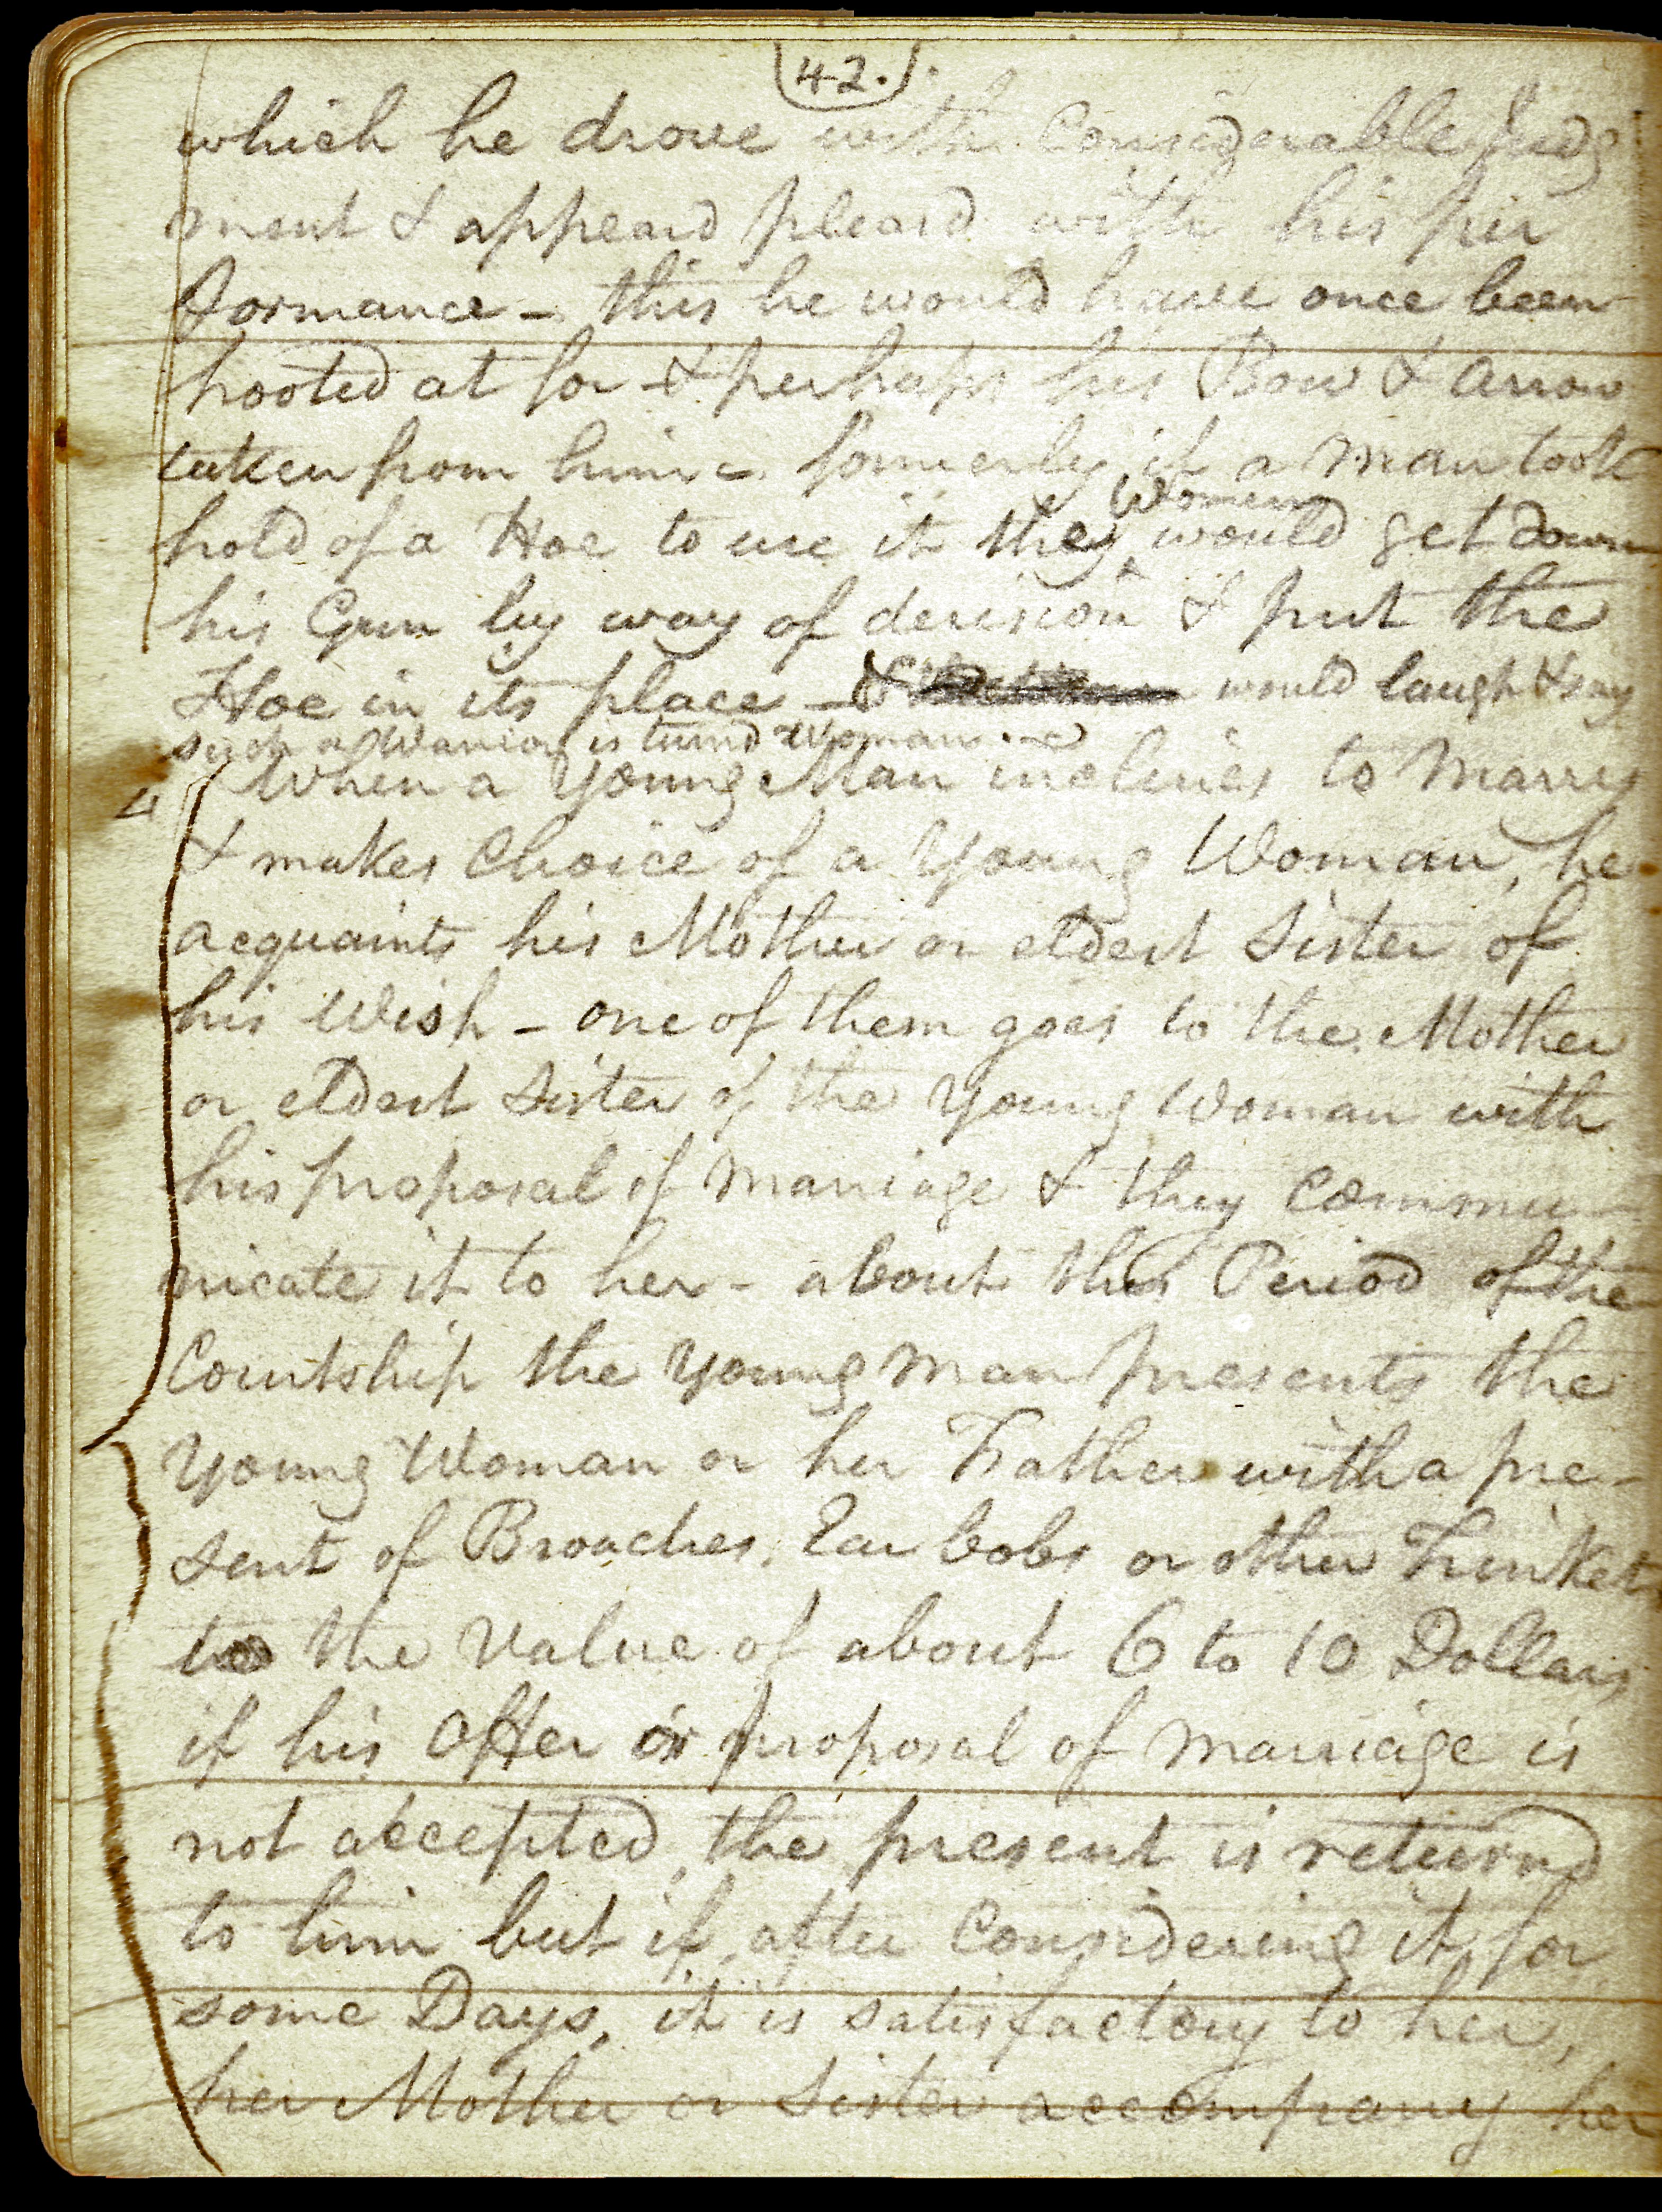 42.
which he drove with Considerable Judg
ment & appeard pleasd with his per
formance - this he would have once been
hooted at for & perhaps his Bow & arrow
taken from him - formerly if a man took
Women
hold of a Hoe to use it they would get down
his Gun by way of derision & put the
Hoe in its place - & would laugh & say
such a Warrior is turnd Woman -
4 When a Young Man inclines to Marry
& makes Choice of a Young Woman, he
acquaints his Mother or eldest Sister of
his Wish - one of them goes to the Mother
or eldest Sister of the Young Woman with
his proposal of Marriage & they Commu
nicate it to her - about this Period of the
Courtship the Young Man presents the
Young Woman or her Father with a pre-
sent of Broaches, Ear bobs or other Trinkets
to the Value of about 6 to 10 Dollars
if his Offer or proposal of Marriage is
not accepted, the present is returnd
to him but if, after Considering it, for
some Days, it is satisfactory to her,
her Mother or Sister accompany her